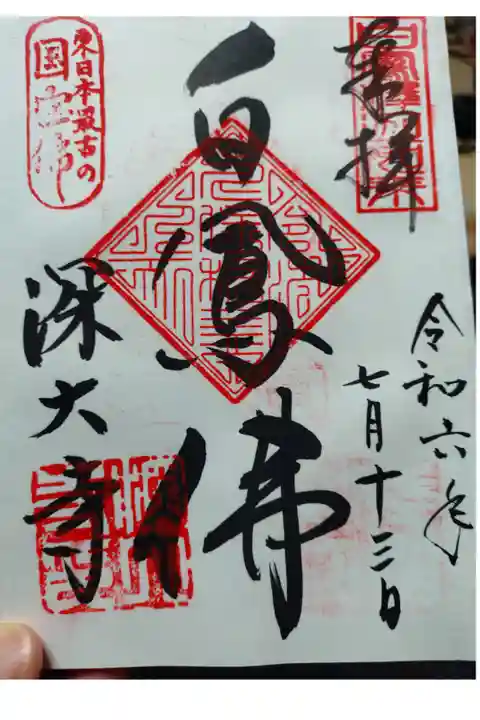 奉拝
令和六年
七月十三日
白鳳佛
深大寺
東日本最古の
国宝佛